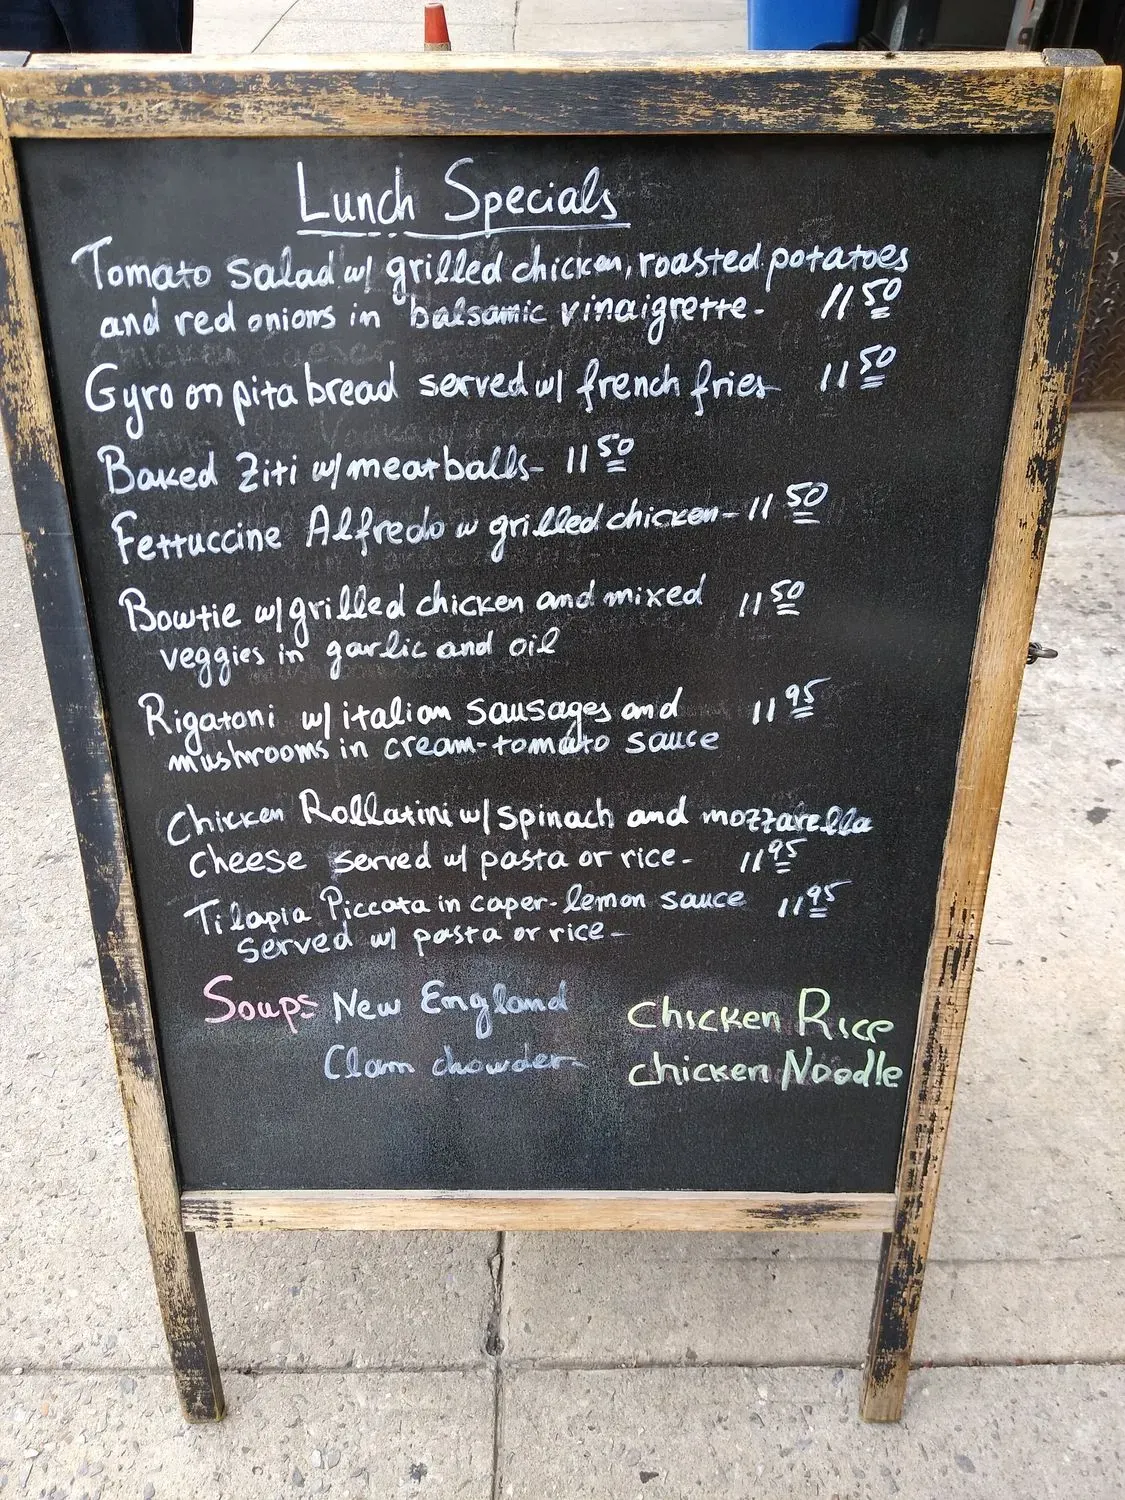 Lunch Specials
Tomato salad w/ grilled chicken, roasted potatoes
and red onions in balsamic vinaigrette- 11 50
Gyro on pita bread served w/ french fries 11 50
Baked Ziti w/ meatballs- 11 50
Fettuccine Alfredo w grilled chicken- 11 50
Bowtie w/ grilled chicken and mixed 11 50
veggies in garlic and oil
Rigatoni w/ italian sausages and 11 95
mushrooms in cream-tomato sauce
Chicken Rollatini w/ spinach and mozzarella
cheese served w/ pasta or rice- 11 95
Tilapia Piccata in caper-lemon sauce 11 95
served w/ pasta or rice-
Soups New England
Clam chowder-
Chicken Rice
chicken Noodle